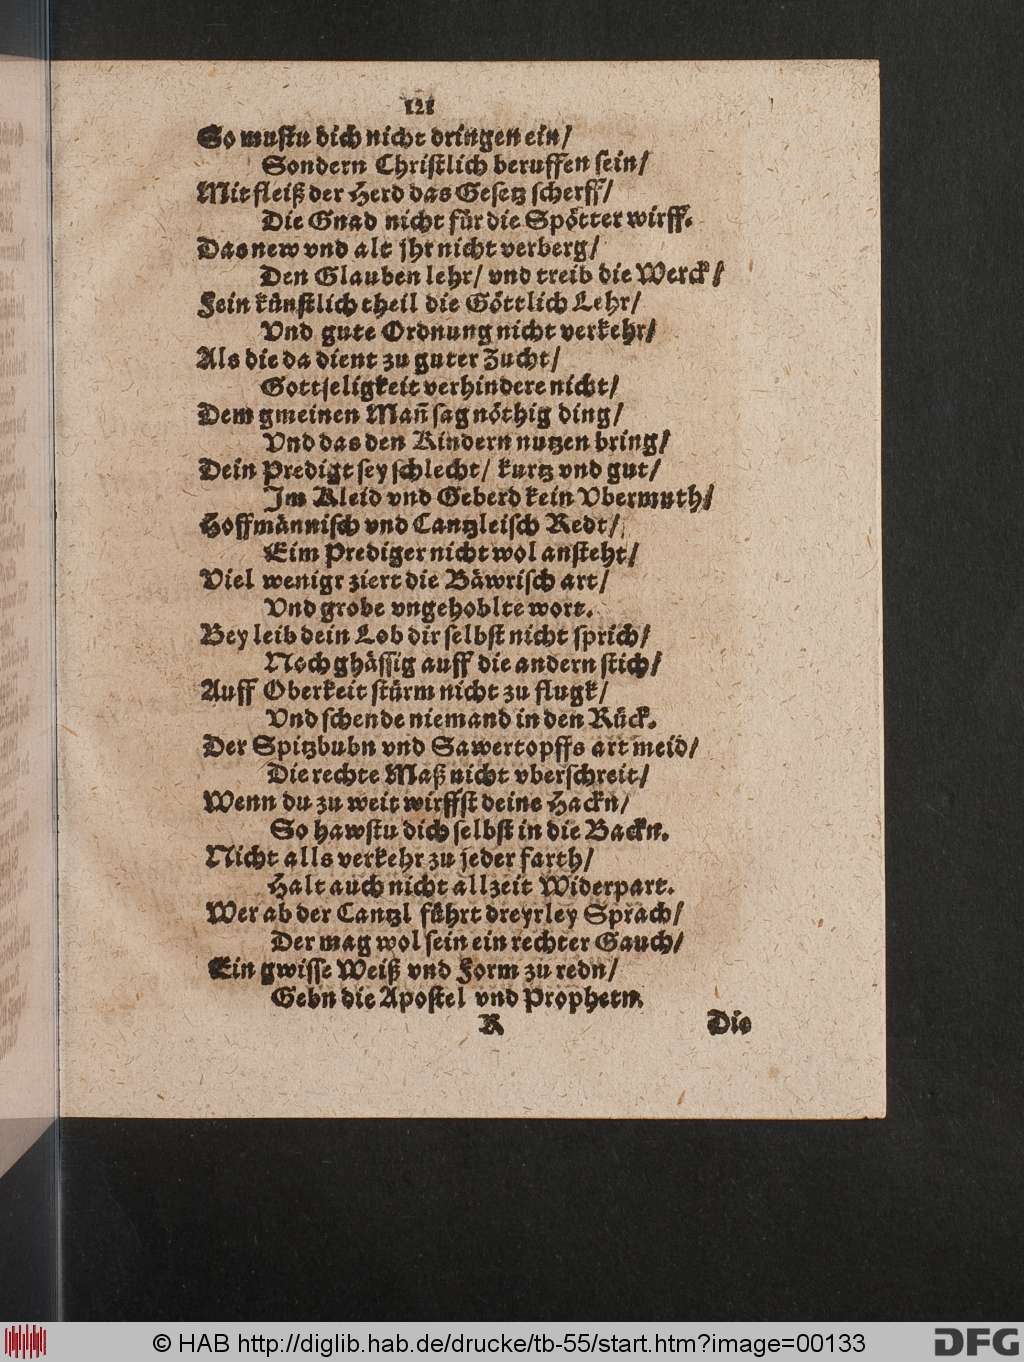 121
So mustu dich nicht dringen ein/
Sondern Christlich beruffen sein/
Mit fleiß der Herd das Gesetz scherff/
Die Gnad nicht für die Spötter wirff.
Das new vnd alt jhr nicht verberg/
Den Glauben lehr/ vnd treib die Werck/
Fein künstlich theil die Göttlich Lehr/
Vnd gute Ordnung nicht verkehr/
Als die da dient zu guter Zucht/
Gottseligkeit verhindere nicht/
Dem gmeinen Mañ sag nöthig ding/
Vnd das den Kindern nutzen bring/
Dein Predigt sey schlecht/ kurtz vnd gut/
Im Kleid vnd Geberd kein Vbermuth/
Hoffmännisch vnd Cantzleisch Redt/
Eim Prediger nicht wol ansteht/
Viel wenigr ziert die Bäwrisch art/
Vnd grobe vngehoblte wort.
Bey leib dein Lob dir selbst nicht sprich/
Noch ghässig auff die andern stich/
Auff Oberkeit stürm nicht zu flugk/
Vnd schende niemand in den Rück.
Der Spitzbubn vnd Sawertopffs art meid/
Die rechte Maß nicht vberschreit/
Wenn du zu weit wirffst deine Hackn/
So hawstu dich selbst in die Backn.
Nicht alls verkehr zu jeder farth/
Halt auch nicht allzeit Widerpart.
Wer ab der Cantzl führt dreyrley Sprach/
Der mag wol sein ein rechter Gauch/
Ein gwisse Weiß vnd Form zu redn/
Gebn die Apostel vnd Prophetn.
R Die
© HAB http://diglib.hab.de/drucke/tb-55/start.htm?image=00133
DFG